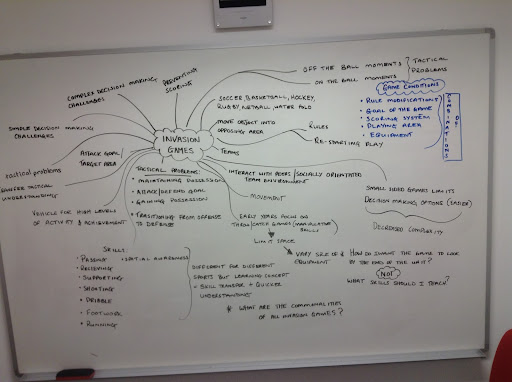 OFF THE BALL MOMENTS
ON THE BALL MOMENTS
TACTICAL
PROBLEMS
COMPLEX DECISION MAKING
CHALLENGES
PREVENTING
SCORING
GAME CONDITIONS
• RULE MODIFICATIONS
• GOAL OF THE GAME
• SCORING SYSTEM
• PLAYING AREA
• EQUIPMENT
COMBINATIONS
OF
SOCCER, BASKETBALL, HOCKEY,
RUGBY, NETBALL, WATER POLO
SIMPLE DECISION MAKING
CHALLENGES
INVASION
GAMES
MOVE OBJECT INTO
OPPOSING AREA
RULES
RE-STARTING PLAY
ATTACK GOAL/
TARGET AREA
TEAMS
tactical problems
TRANSFER TACTICAL
UNDERSTANDING
TACTICAL PROBLEMS
• MAINTAINING POSSESSION
• ATTACK/DEFEND GOAL
• GAINING POSSESSION
• TRANSITIONING FROM OFFENSE
TO DEFENSE
INTERACT WITH PEERS/SOCIALLY ORIENTATED
TEAM ENVIRONMENT
MOVEMENT
SMALL SIDED GAMES LIMITS
DECISION MAKING OPTIONS (EASIER)
DECREASED COMPLEXITY
VEHICLE FOR HIGH LEVELS
OF ACTIVITY & ACHIEVEMENT
EARLY YEARS FOCUS ON
THROW/CATCH GAMES (MANIPULATIVE
SKILLS)
LIMIT SPACE
VARY SIZE OF
EQUIPMENT
SKILLS
• PASSING
• SPATIAL AWARENESS
• RECEIVING
• SUPPORTING
• SHOOTING
• DRIBBLE
• FOOTWORK
• RUNNING
DIFFERENT FOR DIFFERENT
SPORTS BUT LEARNING CONCEPT
= SKILL TRANSFER + QUICKER
UNDERSTANDING
* WHAT ARE THE COMMONALITIES
OF ALL INVASION GAMES?
HOW DO I WANT THE GAME TO LOOK
BY THE END OF THE UNIT?
NOT
WHAT SKILLS SHOULD I TEACH?